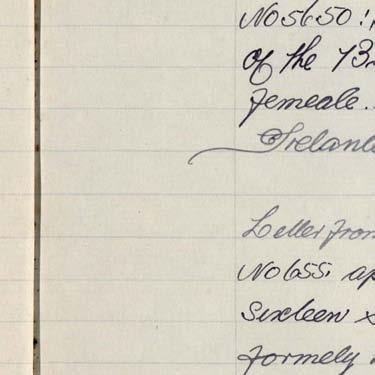 No 5650
of the 73
Femeale.
Ireland
Letter from
No 655 ap
Sixteen s
formely